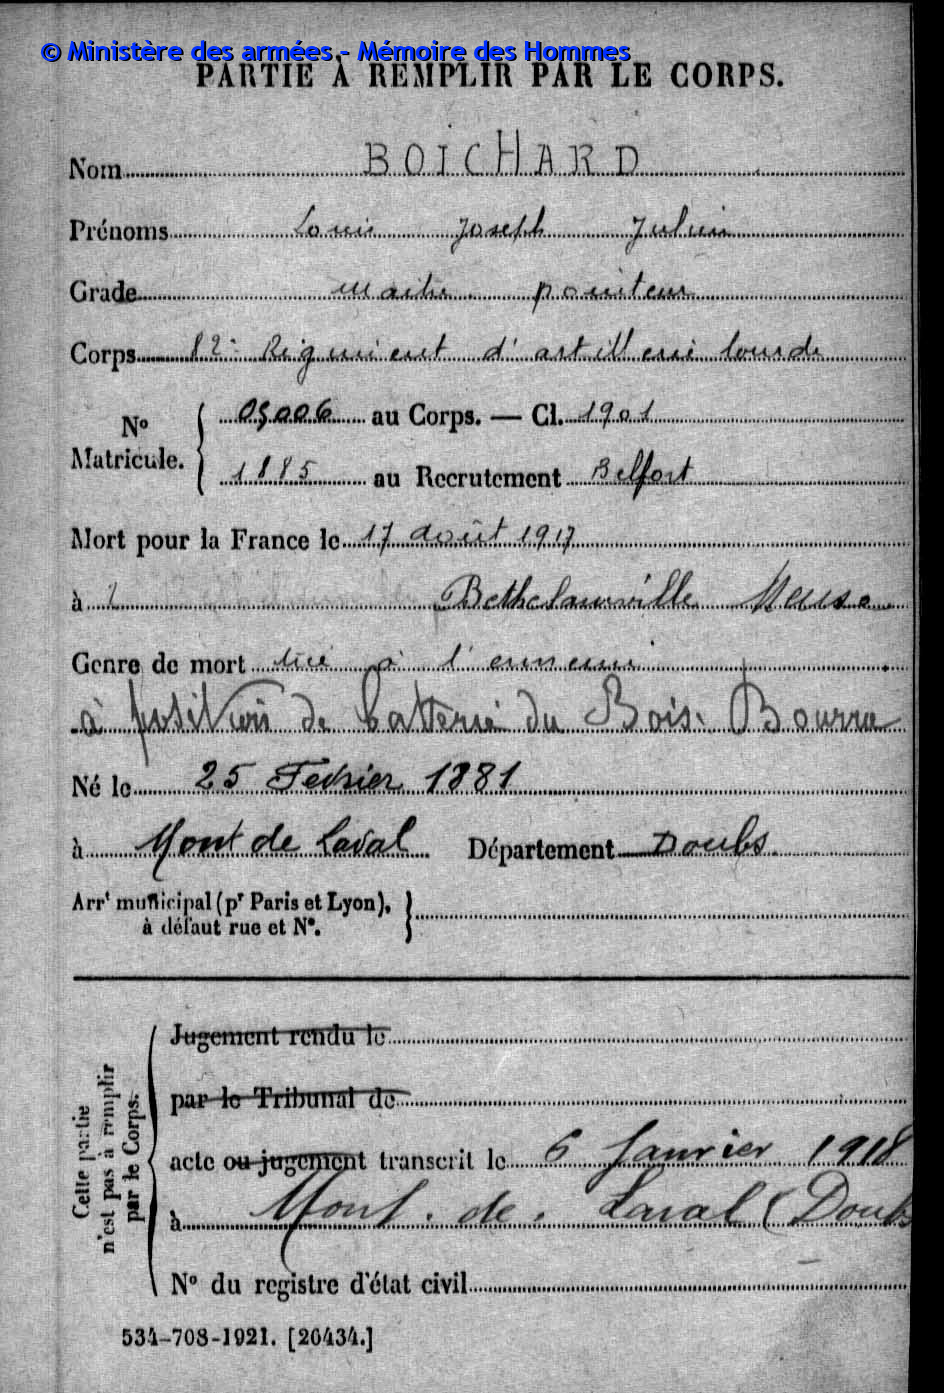 © Ministère des armées - Mémoire des Hommes
PARTIE À REMPLIR PAR LE CORPS.
Nom BOICHARD
Prénoms Louis Joseph Julien
Grade maitre pointeur
Corps 82e Régiment d'artillerie lourde
No Matricule. { 05006 au Corps. — Cl. 1901
1885 au Recrutement Belfort
Mort pour la France le 17 Août 1917
à Bethelainville Meuse
Genre de mort tué à l'ennemi
à position de batterie du Bois Bourru
Né le 25 Février 1881
à Mont de Laval Département Doubs
Arrt municipal (pr Paris et Lyon), à défaut rue et No. }
Cette partie n'est pas à remplir par le Corps.
Jugement rendu le
par le Tribunal de
acte ou jugement transcrit le 6 Janvier 1918
à Mont de Laval (Doubs
No du registre d'état civil
534-708-1921. [26434.]